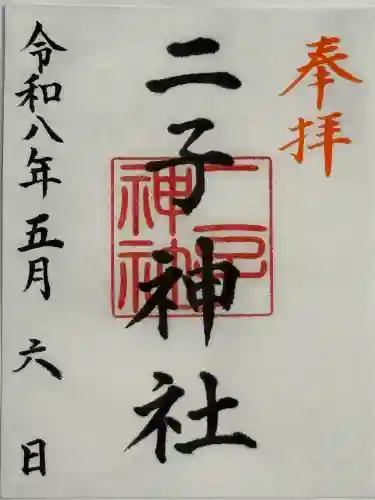 奉拝
二子神社
二子神社
令和八年五月六日